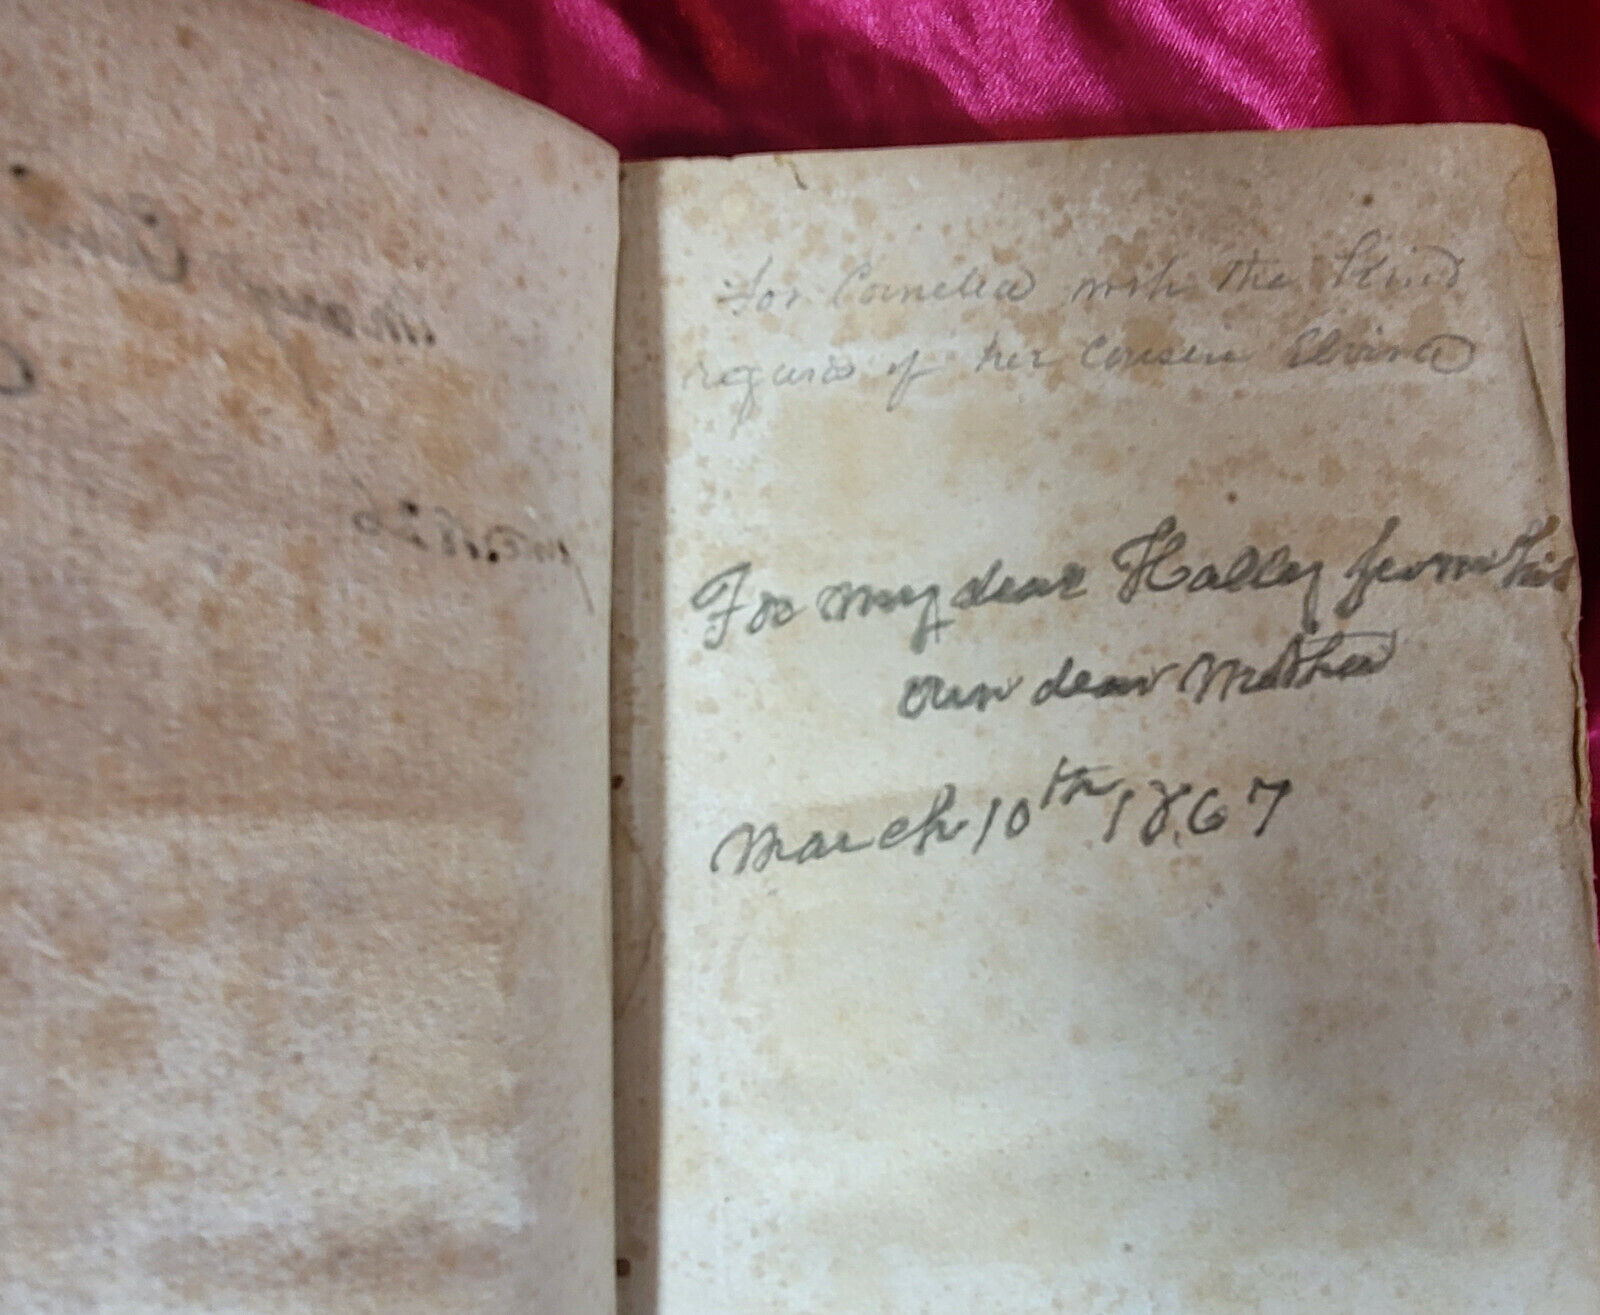 For Cornelia with the kind
regards of her Cousin Elvina
For my dear Halley from his
own dear Mother
March 10th 1867